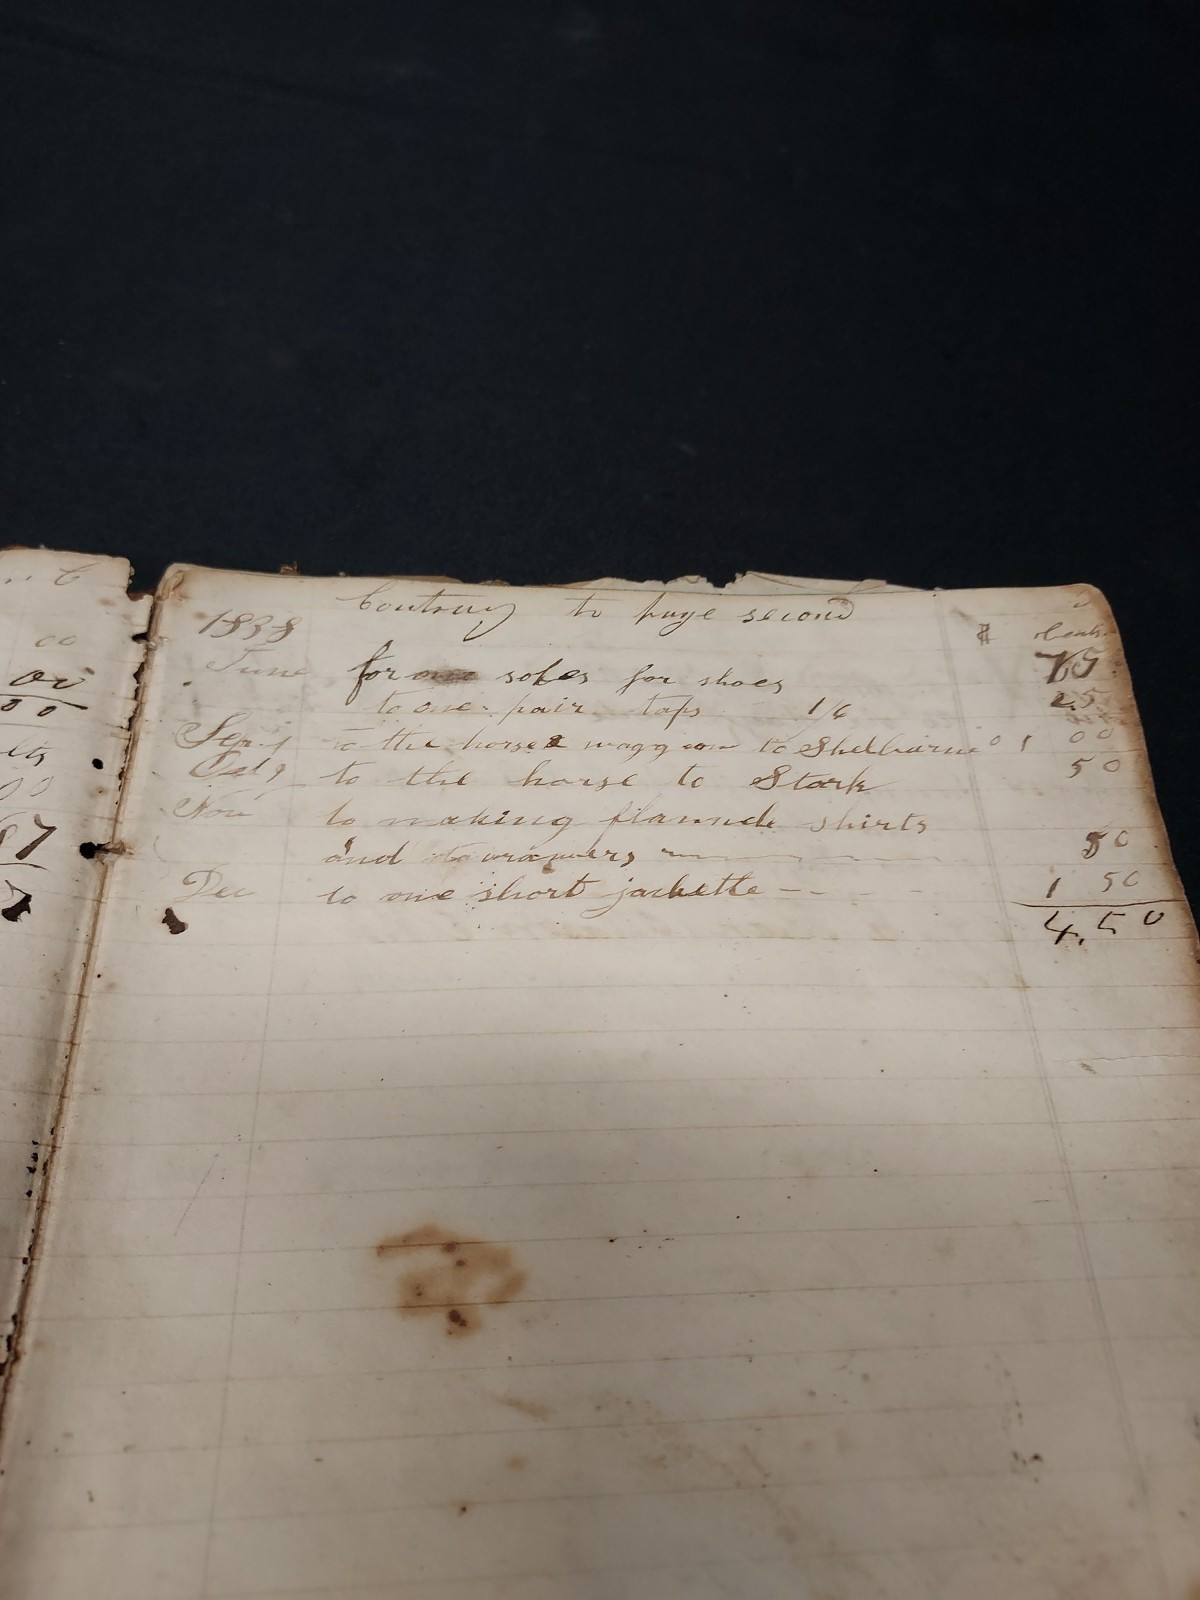 Contrary to page second
1838 $ Cents
June for one soles for shoes 75
to one pair taps 1/6 25
Sep. 1 to the horse & waggon to Shelburne 1 00
Oct 9 to the horse to Stark 50
Nov to making flannel shirts
and drawers 50
Dec to one short jackette 1 50
4.50
00
00
00
cts
00
87
7